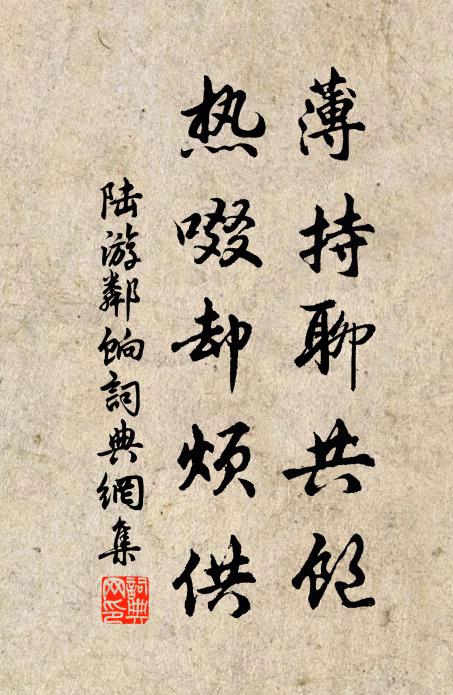 薄持聊共饱
热啜却烦供
陆游鄰饷詞典網集
詞典网印